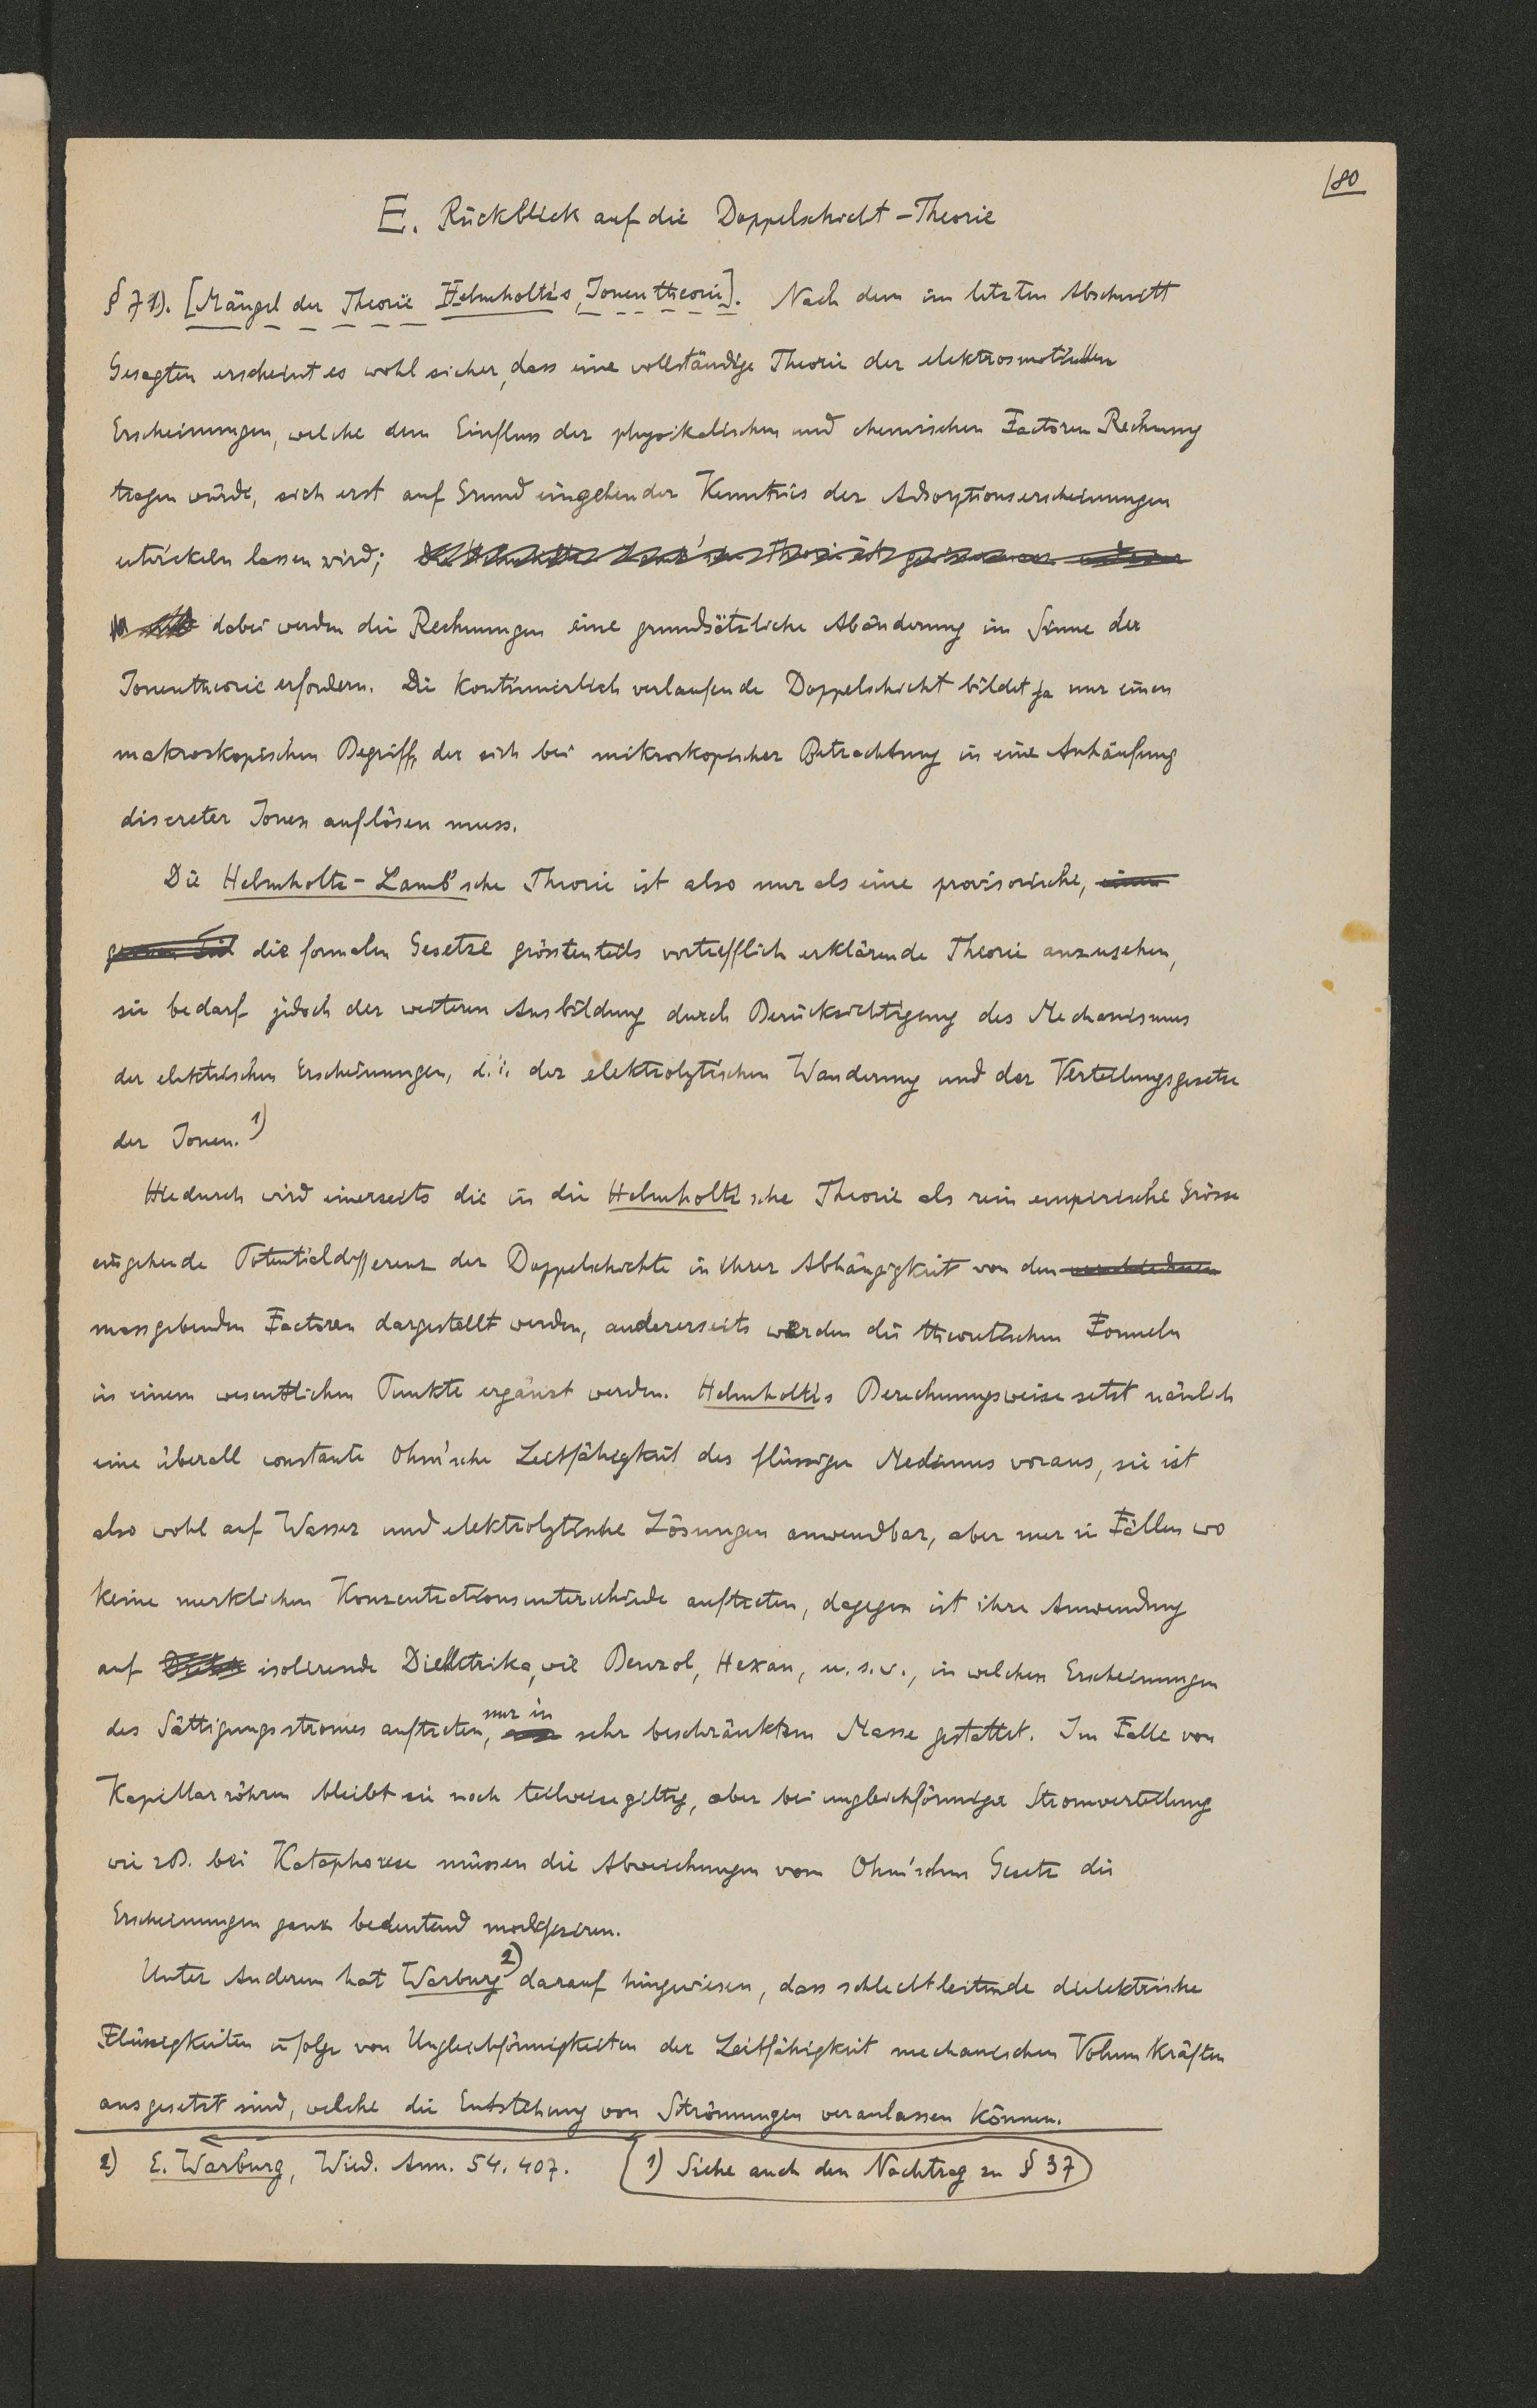 80
E. Rückblick auf die Doppelschicht-Theorie
§ 71). [Mängel der Theorie Helmholtz's, Ionentheorie]. Nach dem im letzten Abschnitt
Gesagten erscheint es wohl sicher, dass eine vollständige Theorie der elektrosmotischen
Erscheinungen, welche dem Einfluss der physikalischen und chemischen Factoren Rechnung
tragen würde, sich erst auf Grund eingehender Kenntnis der Adsorptionserscheinungen
entwickeln lassen wird;
dabei werden die Rechnungen eine grundsätzliche Abänderung im Sinne der
Ionentheorie erfordern. Die kontinuierlich verlaufende Doppelschicht bildet ja nur einen
makroskopischen Begriff, der sich bei mikroskopischer Betrachtung in eine Anhäufung
discreter Ionen auflösen muss.
Die Helmholtz-Lamb'sche Theorie ist also nur als eine provisorische,
die formalen Gesetze grösstenteils vortrefflich erklärende Theorie anzusehen,
sie bedarf jedoch der weiteren Ausbildung durch Berücksichtigung des Mechanismus
der elektrischen Erscheinungen, d.i. der elektrolytischen Wanderung und der Verteilungsgesetze
der Ionen. 1)
Hiedurch wird einerseits die in die Helmholtz'sche Theorie als rein empirische Grösse
eingehende Potentialdifferenz der Doppelschichte in ihrer Abhängigkeit von den
massgebenden Factoren dargestellt werden, andererseits werden die theoretischen Formeln
in einem wesentlichen Punkte ergänzt werden. Helmholtz's Berechnungsweise setzt nämlich
eine überall constante Ohm'sche Leitfähigkeit des flüssigen Mediums voraus, sie ist
also wohl auf Wasser und elektrolytische Lösungen anwendbar, aber nur in Fällen wo
keine merklichen Konzentrationsunterschiede auftreten, dagegen ist ihre Anwendung
auf isolirende Dielektrika, wie Benzol, Hexan, u.s.w., in welchen Erscheinungen
des Sättigungsstromes auftreten, nur in sehr beschränktem Masse gestattet. Im Falle von
Kapillarröhren bleibt sie noch teilweise giltig, aber bei ungleichförmiger Stromverteilung
wie zB. bei Kataphorese müssen die Abweichungen vom Ohm'schen Gesetz die
Erscheinungen ganz bedeutend modifiziren.
Unter Anderem hat Warburg 2) darauf hingewiesen, dass schlechtleitende dielektrische
Flüssigkeiten infolge von Ungleichförmigkeiten der Leitfähigkeit mechanischen Volumkräften
ausgesetzt sind, welche die Entstehung von Strömungen veranlassen können.
2) E. Warburg, Wied. Ann. 54. 407. 1) Siehe auch den Nachtrag zu § 37